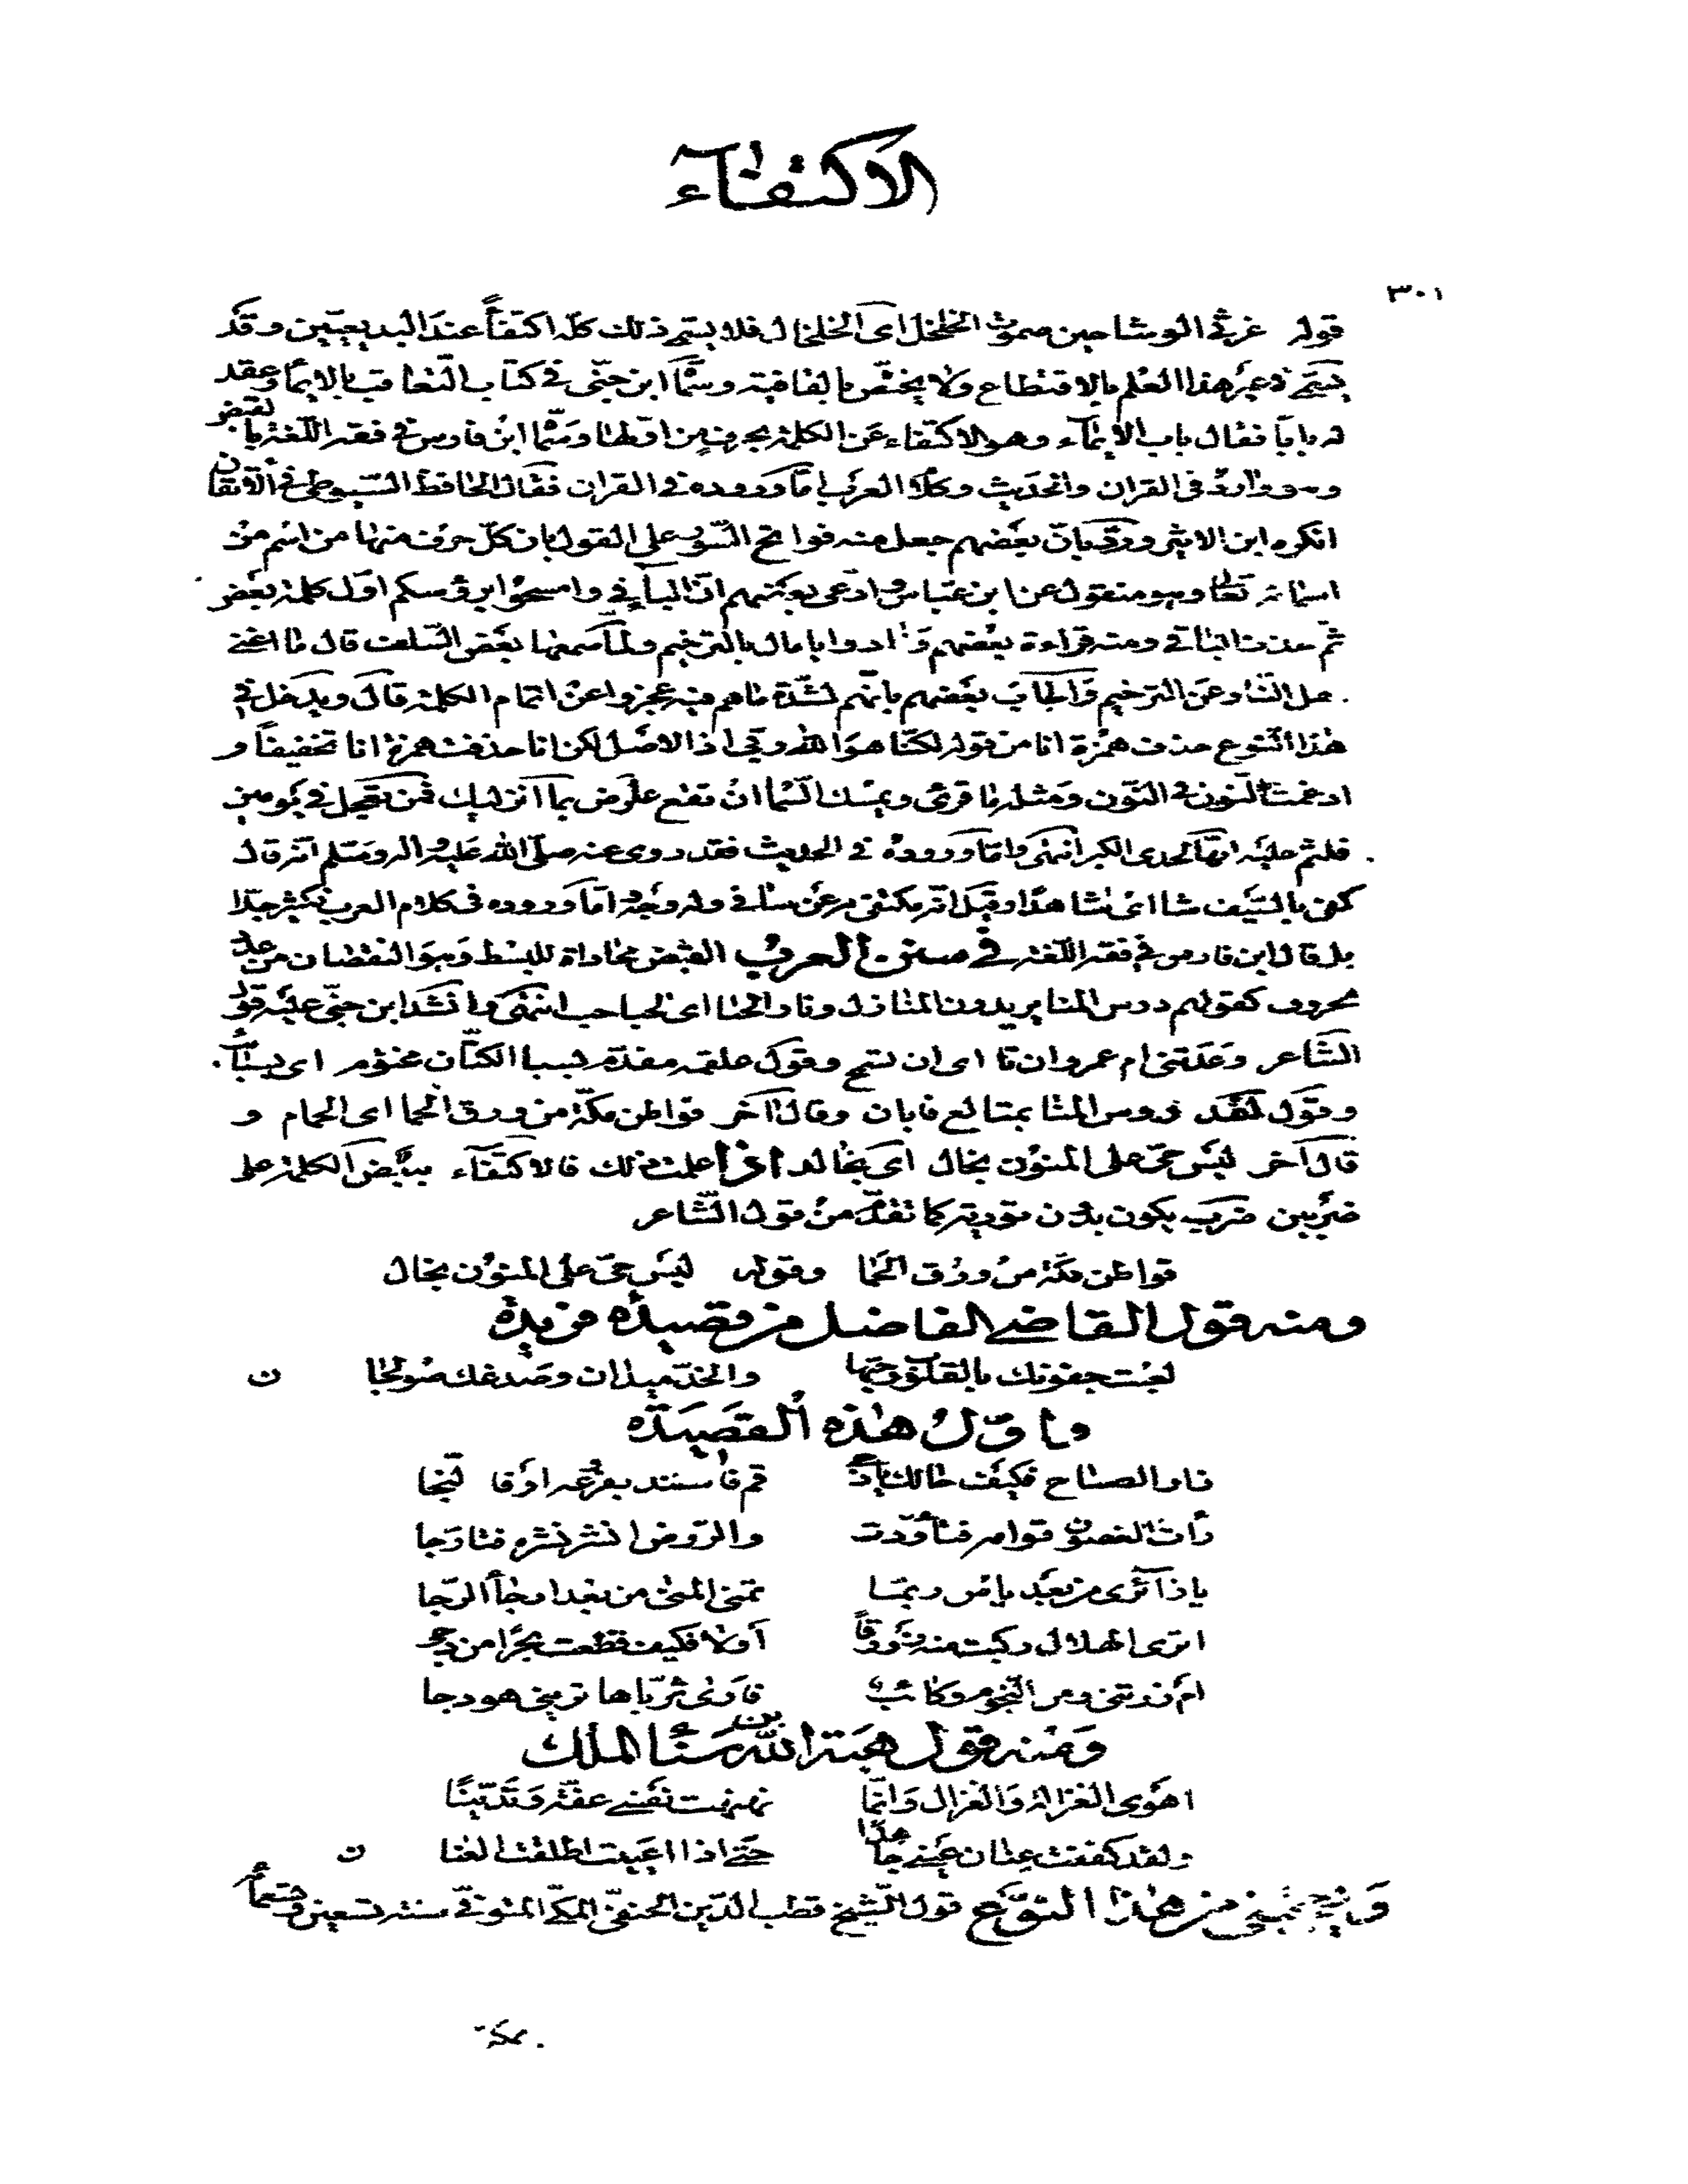 الاكتفاء
٣٠١
قوله غرثى الوشاحين صموت الخلخل اى الخلخال فلا يسمى ذلك كله اكتفاءً عند البديعيين وقد
يسمى غير هذا العلم بالاقتطاع ولا يختص بالقافية وسماه ابن جنى فى كتاب التعاقب بالايماء وعقد
له بابا فقال باب الايماء وهو الاكتفاء عن الكلمة بحرف من اولها وسماه ابن فارس فى فقه اللغة بالقبض
وهو وارد فى القران والحديث وكلام العرب اما وروده فى القران فقال الحافظ السيوطى فى الاتقان
انكره ابن الاثير ورد بان بعضهم جعل منه فواتح السور على القول بان كل حرف منها من اسم من
اسمائه تعالى وهو منقول عن ابن عباس وادعى بعضهم ان الباء فى وامسحوا برؤسكم اول كلمة بعض
ثم حذف الباقى ومنه قراءة بعضهم ونادوا يا مال بالترخيم ولما سمعها بعض السلف قال ما اغنى
اهل النار عن الترخيم واجاب بعضهم بانهم لشدة ماهم فيه عجزوا عن اتمام الكلمة قال ويدخل فى
هذا النوع حذف همزة انا من قوله لكنا هو الله ربى اذ الاصل لكن انا حذفت همزة انا تخفيفاً و
ادغمت النون فى النون ومثله ما قرئ ويمسك السما ان تقع علرض بما انزليك فمن تعجل فى يومين
فلثم عليه انها لحدى الكبر انتهى واما وروده فى الحديث فقد روى عنه صلى الله عليه واله وسلم انه قال
كفى بالسيف شا اى شاهدًا وقيل انه مكتفى به عن شافى وله وجه اما وروده فى كلام العرب فكثير جدا
بل قال ابن فارس فى فقه اللغة فى سنن العرب القبض محاذاة للبسط وهو النقصان من عدد
الحروف كقولهم درس المنا يريدون المنازل ونار الحبا اى الحباحب انتهى وانشد ابن جنى عليه قول
الشاعر وعدتنى ام عمرو ان تا اى ان تمسح وقول علقمة مفدم بسبا الكتان مختوم اى بسبائب
وقول لبيد درس المنا بمتالع فابان وقال اخر قواطن مكة من ورق الحما اى الحمام و
قال آخر ليس حى على المنون بخال اى بخالد اذا علمت ذلك فالاكتفاء ببعض الكلمة على
ضربين ضرب يكون بدون تورية كما تقدم من قول الشاعر
قواطن مكة من ورق الحما وقوله ليس حى على المنون بخال
ومنه قول القاضى الفاضل من قصيدة فريدة
لعبت جفونك بالقلوب وحبها والخد ميدان وصدغك صولجا ن
واول هذه القصيدة
نار الصباح فكيف حالك يا دجى قم فاستند بفرعه او فالنجا
رأت الغصون قوامه فتأودت والروض انشر نشره فتارجا
يا زائرى من بعد ياس ربما تمنى المنى من بعد ارجاء الرجا
اترى الهلال ركبت منه زورقاً أو لا فكيف قطعت بحرًا من دجى
ام زرتنى ومن النجوم ركائب فارى ثرياها ترينى هودجا
ومنه قول هبة الله بن سناء الملك
اهوى الغزالة والغزال وانما نهنهت نفسى عفة وتدينًا
ولقد كففت عنان عينى جاهدا حتى اذا اعييت اطلقت العنا ن
ويعجبنى من هذا النوع قول الشيخ قطب الدين الحنفى المكى المتوفى سنة تسعين وتسعمائة
بمكة